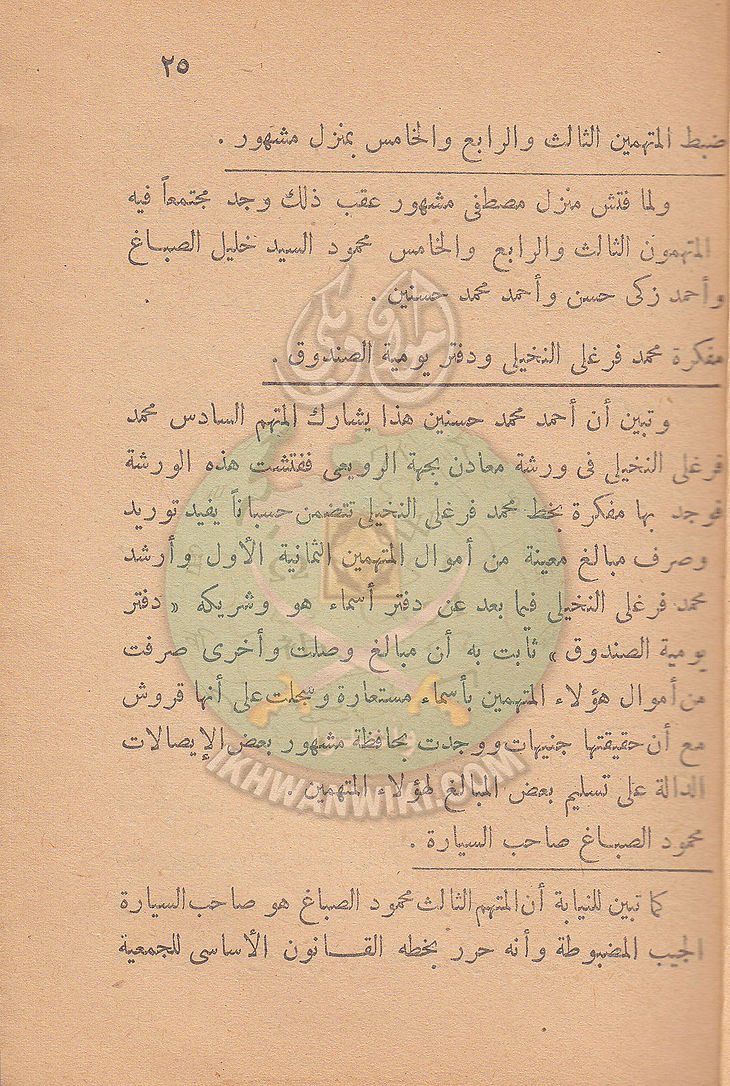 ٢٥
ضبط المتهمين الثالث والرابع والخامس بمنزل مشهور .
ولما فتش منزل مصطفى مشهور عقب ذلك وجد مجتمعاً فيه
المتهمون الثالث والرابع والخامس محمود السيد خليل الصباغ
وأحمد زكى حسن وأحمد محمد حسنين .
مفكرة محمد فرغلى النخيلى ودفتر يومية الصندوق .
وتبين أن أحمد محمد حسنين هذا يشارك المتهم السادس محمد
فرغلى النخيلى فى ورشة معادن بجهة الرويعى ففتشت هذه الورشة
فوجد بها مفكرة بخط محمد فرغلى النخيلى تتضمن حسباناً يفيد توريد
وصرف مبالغ معينة من أموال المتهمين الثمانية الأول وأرشد
محمد فرغلى النخيلى فيما بعد عن دفتر أسماء هو وشريكه « دفتر
يومية الصندوق » ثابت به أن مبالغ وصلت وأخرى صرفت
من أموال هؤلاء المتهمين بأسماء مستعارة وسجلت على أنها قروش
مع أن حقيقتها جنيهات ووجدت بحافظة مشهور بعض الإيصالات
الدالة على تسليم بعض المبالغ لهؤلاء المتهمين .
محمود الصباغ صاحب السيارة .
كما تبين للنيابة أن المتهم الثالث محمود الصباغ هو صاحب السيارة
الجيب المضبوطة وأنه حرر بخطه القانون الأساسى للجمعية
إخوان ويكى
IKHWANWIKI.COM